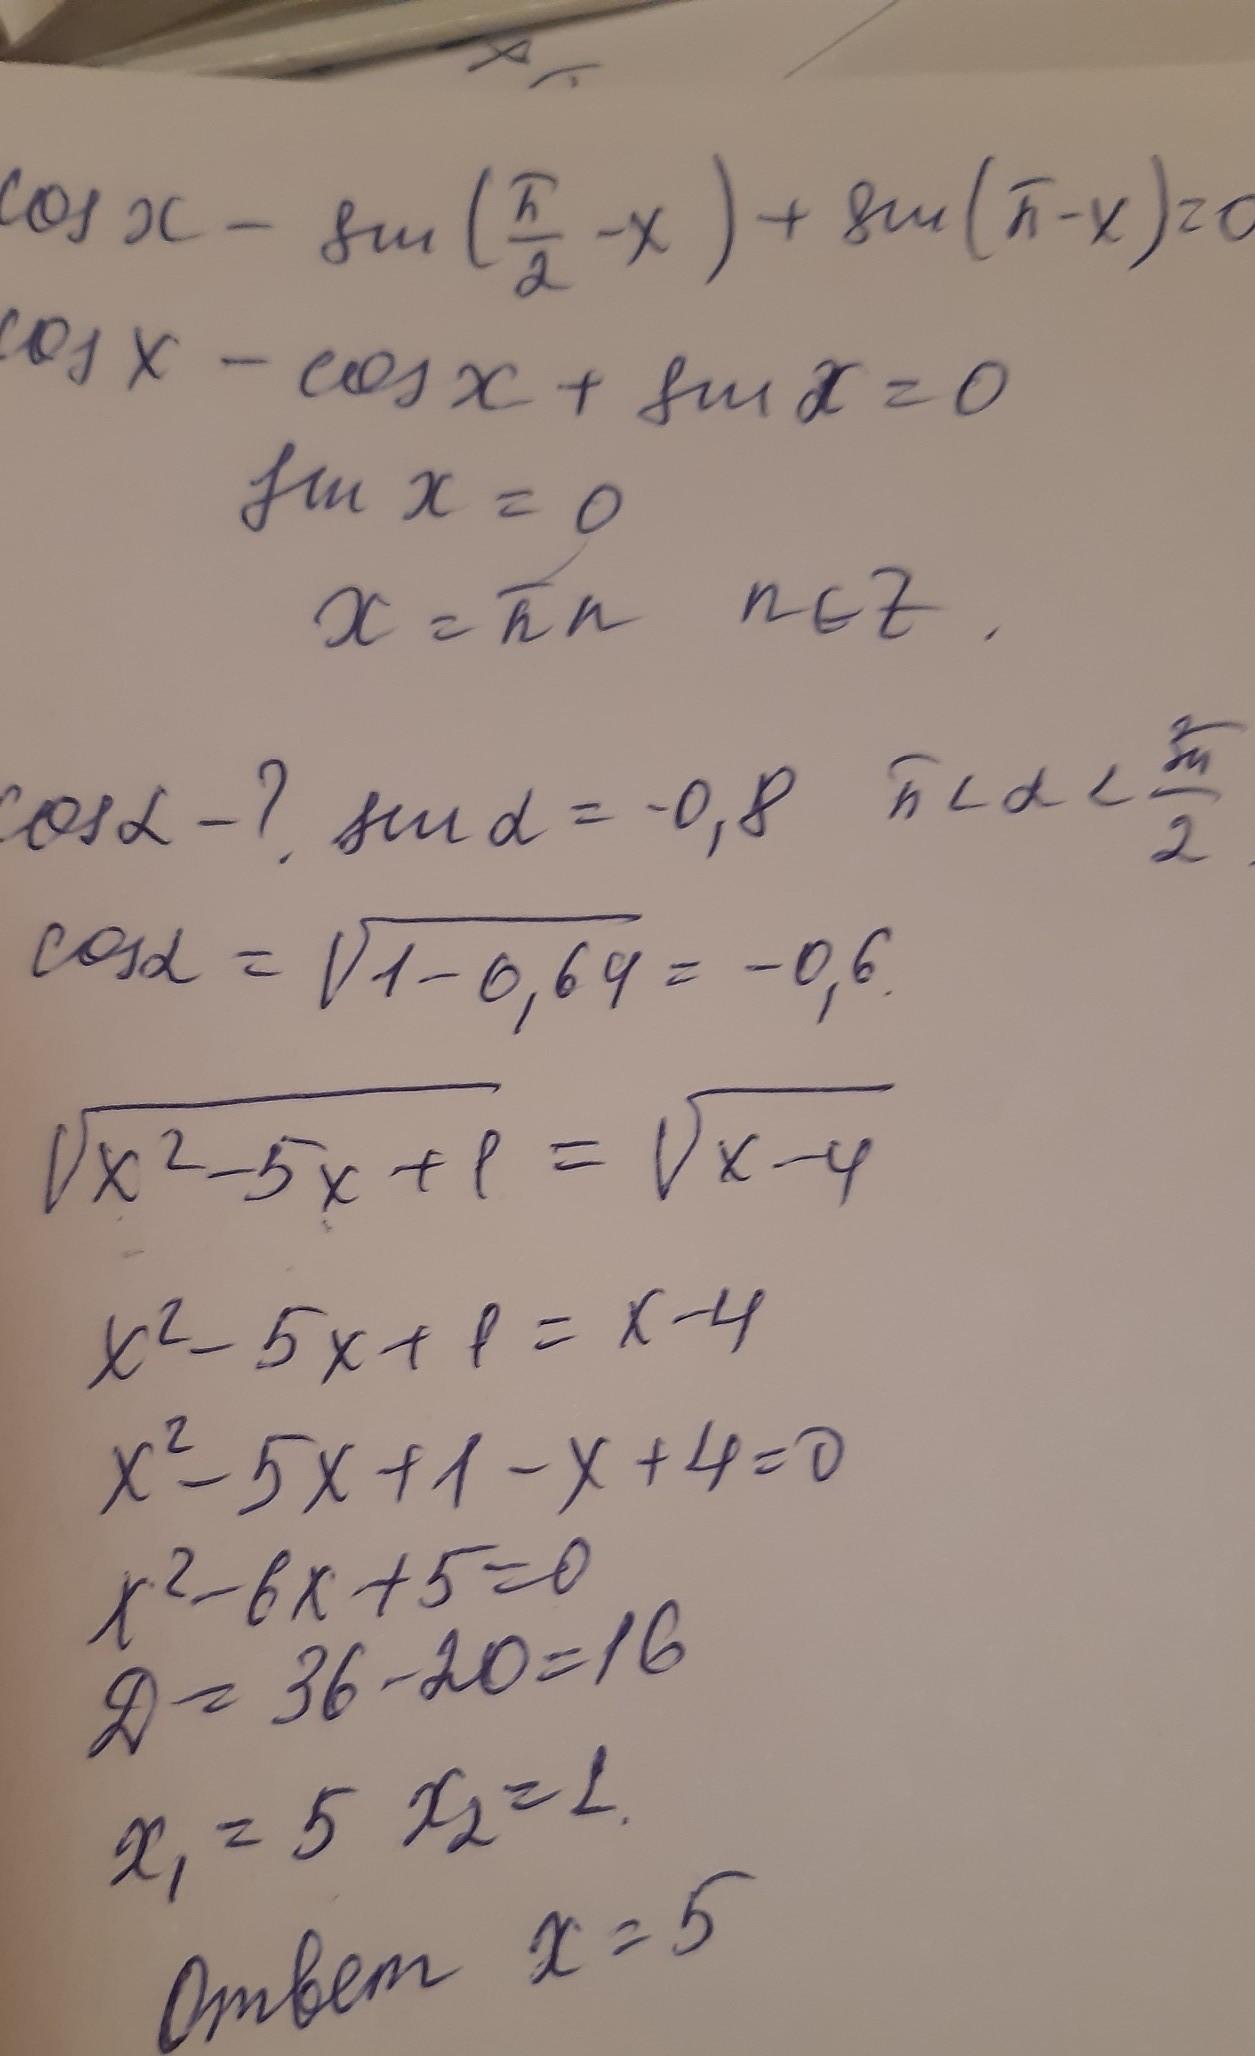 cos x - sin(π/2 - x) + sin(π - x) = 0
cos x - cos x + sin x = 0
sin x = 0
x = πn n ∈ Z.
cos α - ? sin α = -0,8 π < α < 3π/2.
cos α = √(1 - 0,64) = -0,6.
√(x² - 5x + 1) = √(x - 4)
x² - 5x + 1 = x - 4
x² - 5x + 1 - x + 4 = 0
x² - 6x + 5 = 0
D = 36 - 20 = 16
x₁ = 5 x₂ = 1.
Ответ x = 5